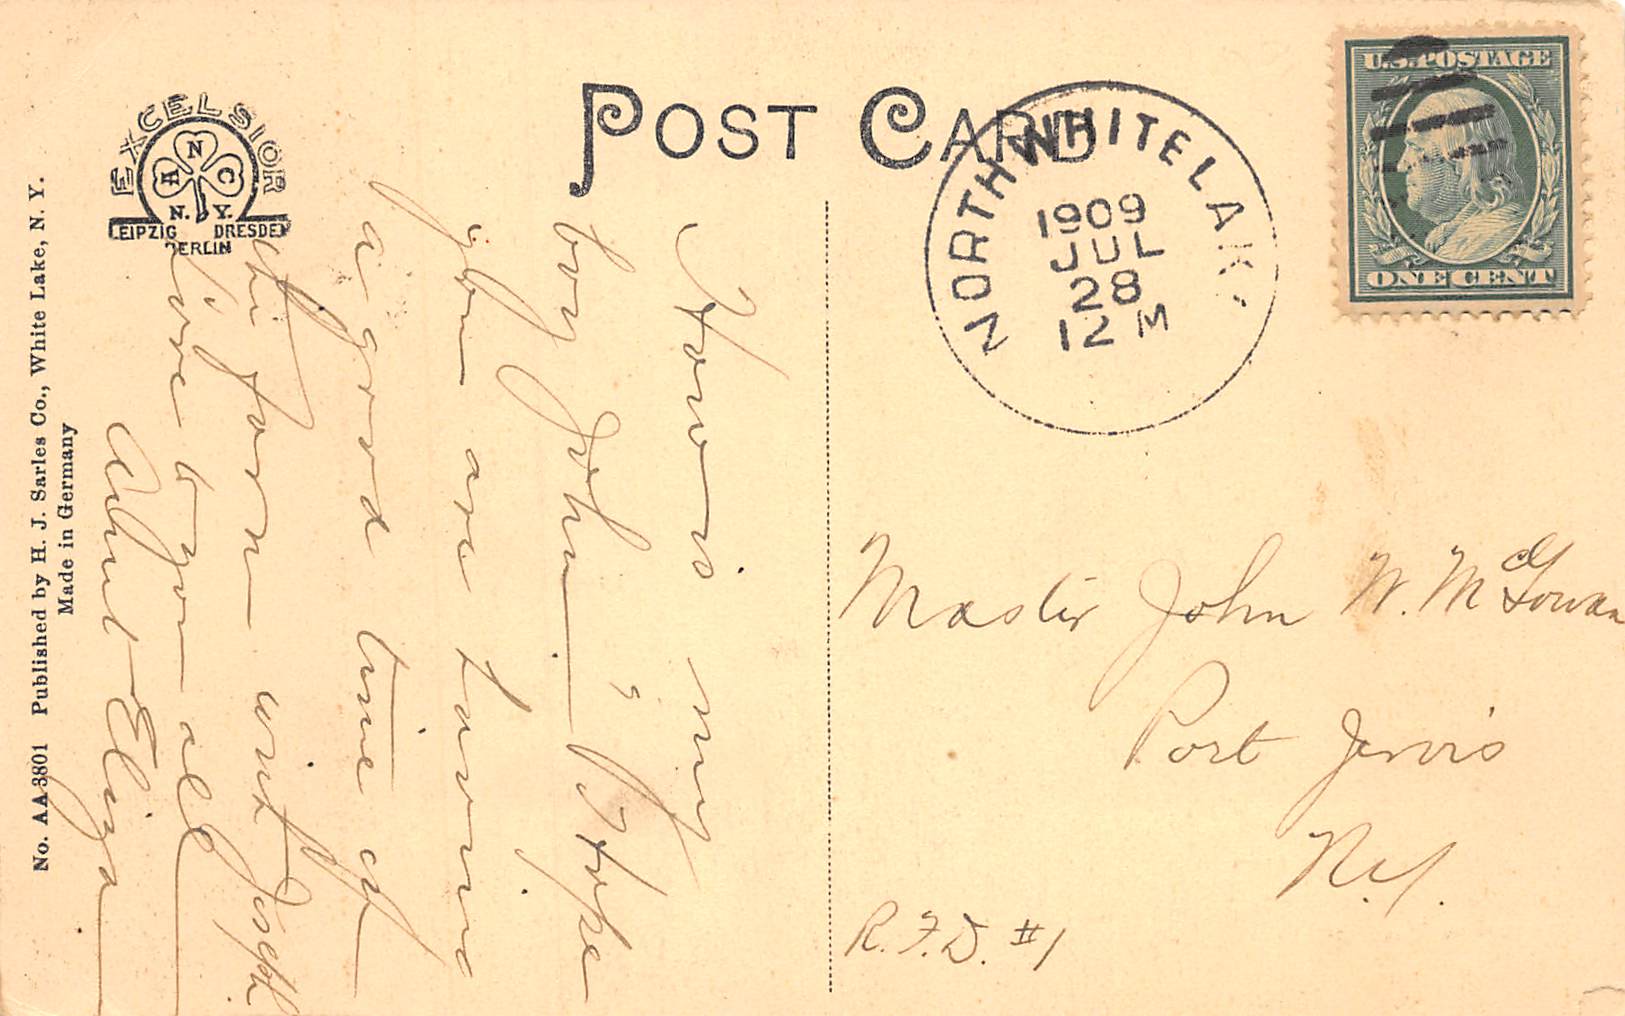 POST CARD
EXCELSIOR
A N C
N. Y.
LEIPZIG DRESDEN
BERLIN
No. AA 3801 Published by H. J. Sarles Co., White Lake, N. Y.
Made in Germany
How is my
boy John? Hope
you are having
a good time at
the farm with Joseph
Love to you all
Aunt Eliza
NORTH WHITE LAKE
1909
JUL
28
12 M
U.S. POSTAGE
ONE CENT
Master John W. McGowan
Port Jervis
N.Y.
R.F.D. #1